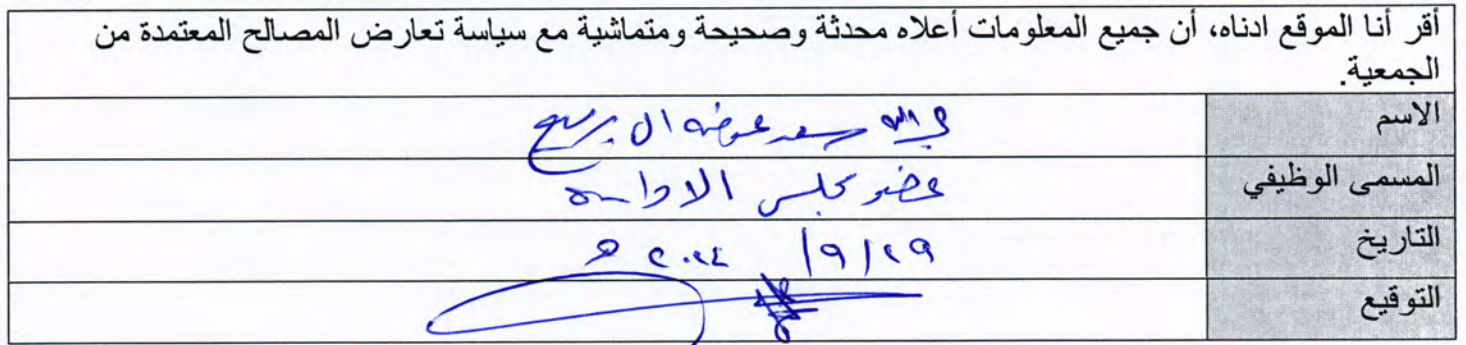 أقر أنا الموقع ادناه، أن جميع المعلومات أعلاه محدثة وصحيحة ومتماشية مع سياسة تعارض المصالح المعتمدة من
الجمعية.
الاسم سعد عوضه ال
المسمى الوظيفي عضو مجلس الادارة
التاريخ ٢٩/٩/ ٢٠٢٤ هـ
التوقيع